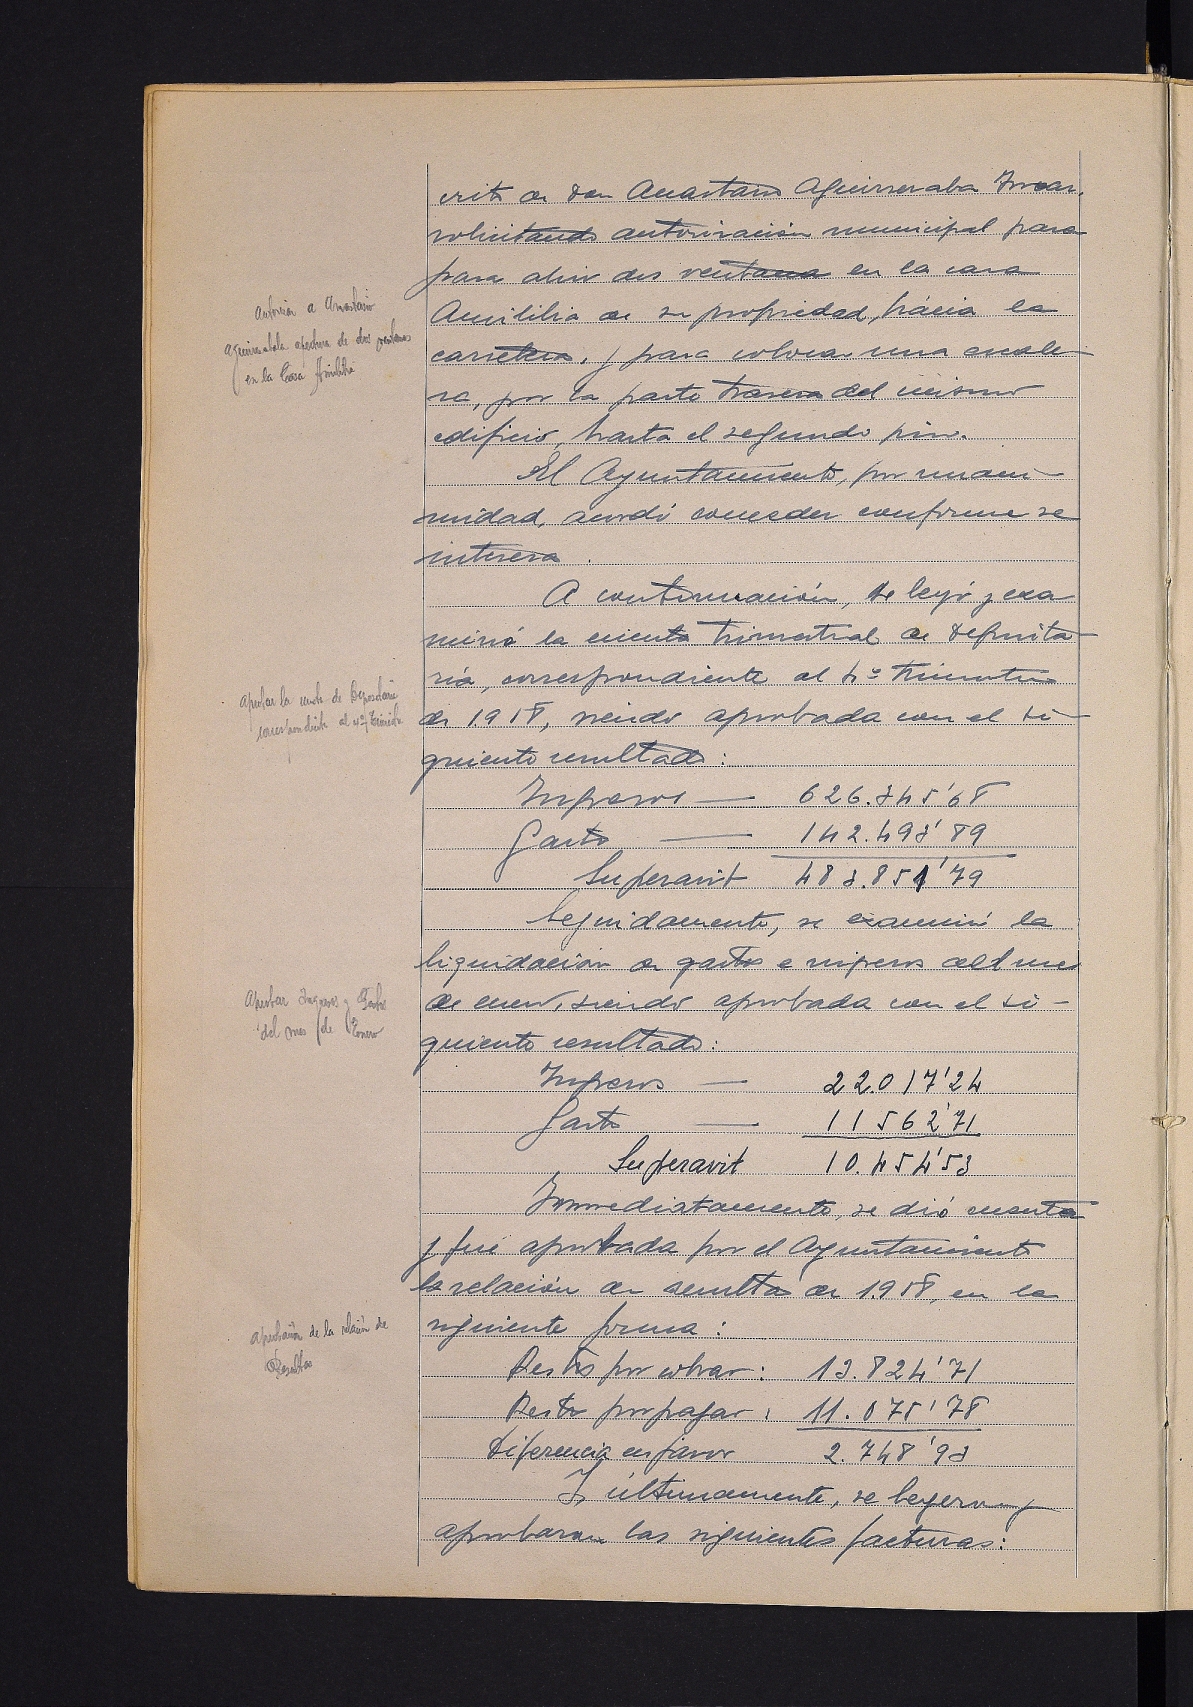 crito de don Anastasio Aguirrezabala Imaz,
solicitando autorización municipal para
para abrir dos ventanas en la casa
Amililia de su propiedad, hácia la
carretera, y para colocar una escale-
ra, por la parte trasera del mismo
edificio, hasta el segundo piso.
El Ayuntamiento, por unani-
midad, acordó conceder conforme se
interesa.
A continuación, se leyó y exa
minó la cuenta trimestral de deposita-
ría, correspondiente al 4º trimestre
de 1958, siendo aprobada con el si-
guiente resultado:
Ingresos — 626.345'68
Gastos — 142.493'89
Superavit 483.851'79
Seguidamente, se examinó la
liquidación de gastos e ingresos del mes
de enero, siendo aprobada con el si-
guiente resultado:
Ingresos — 22.017'24
Gastos — 11562'71
Superavit 10.454'53
Inmediatamente, se dió cuenta
y fué aprobada por el Ayuntamiento
la relación de resultas de 1.958, en la
siguiente forma:
Restos por cobrar: 13.824'71
Restos por pagar: 11.075'78
Diferencia en favor 2.748'93
Y últimamente, se leyeron y
aprobaron las siguientes facturas:
Autorizar a Anastasio
Aguirrezabala apertura de dos ventanas
en la Casa Amililia
Aprobar la cuenta de Depositaría
correspondiente al 4º Trimestre
Aprobar Ingresos y Gastos
del mes de Enero
Aprobación de la relación de
Resultas